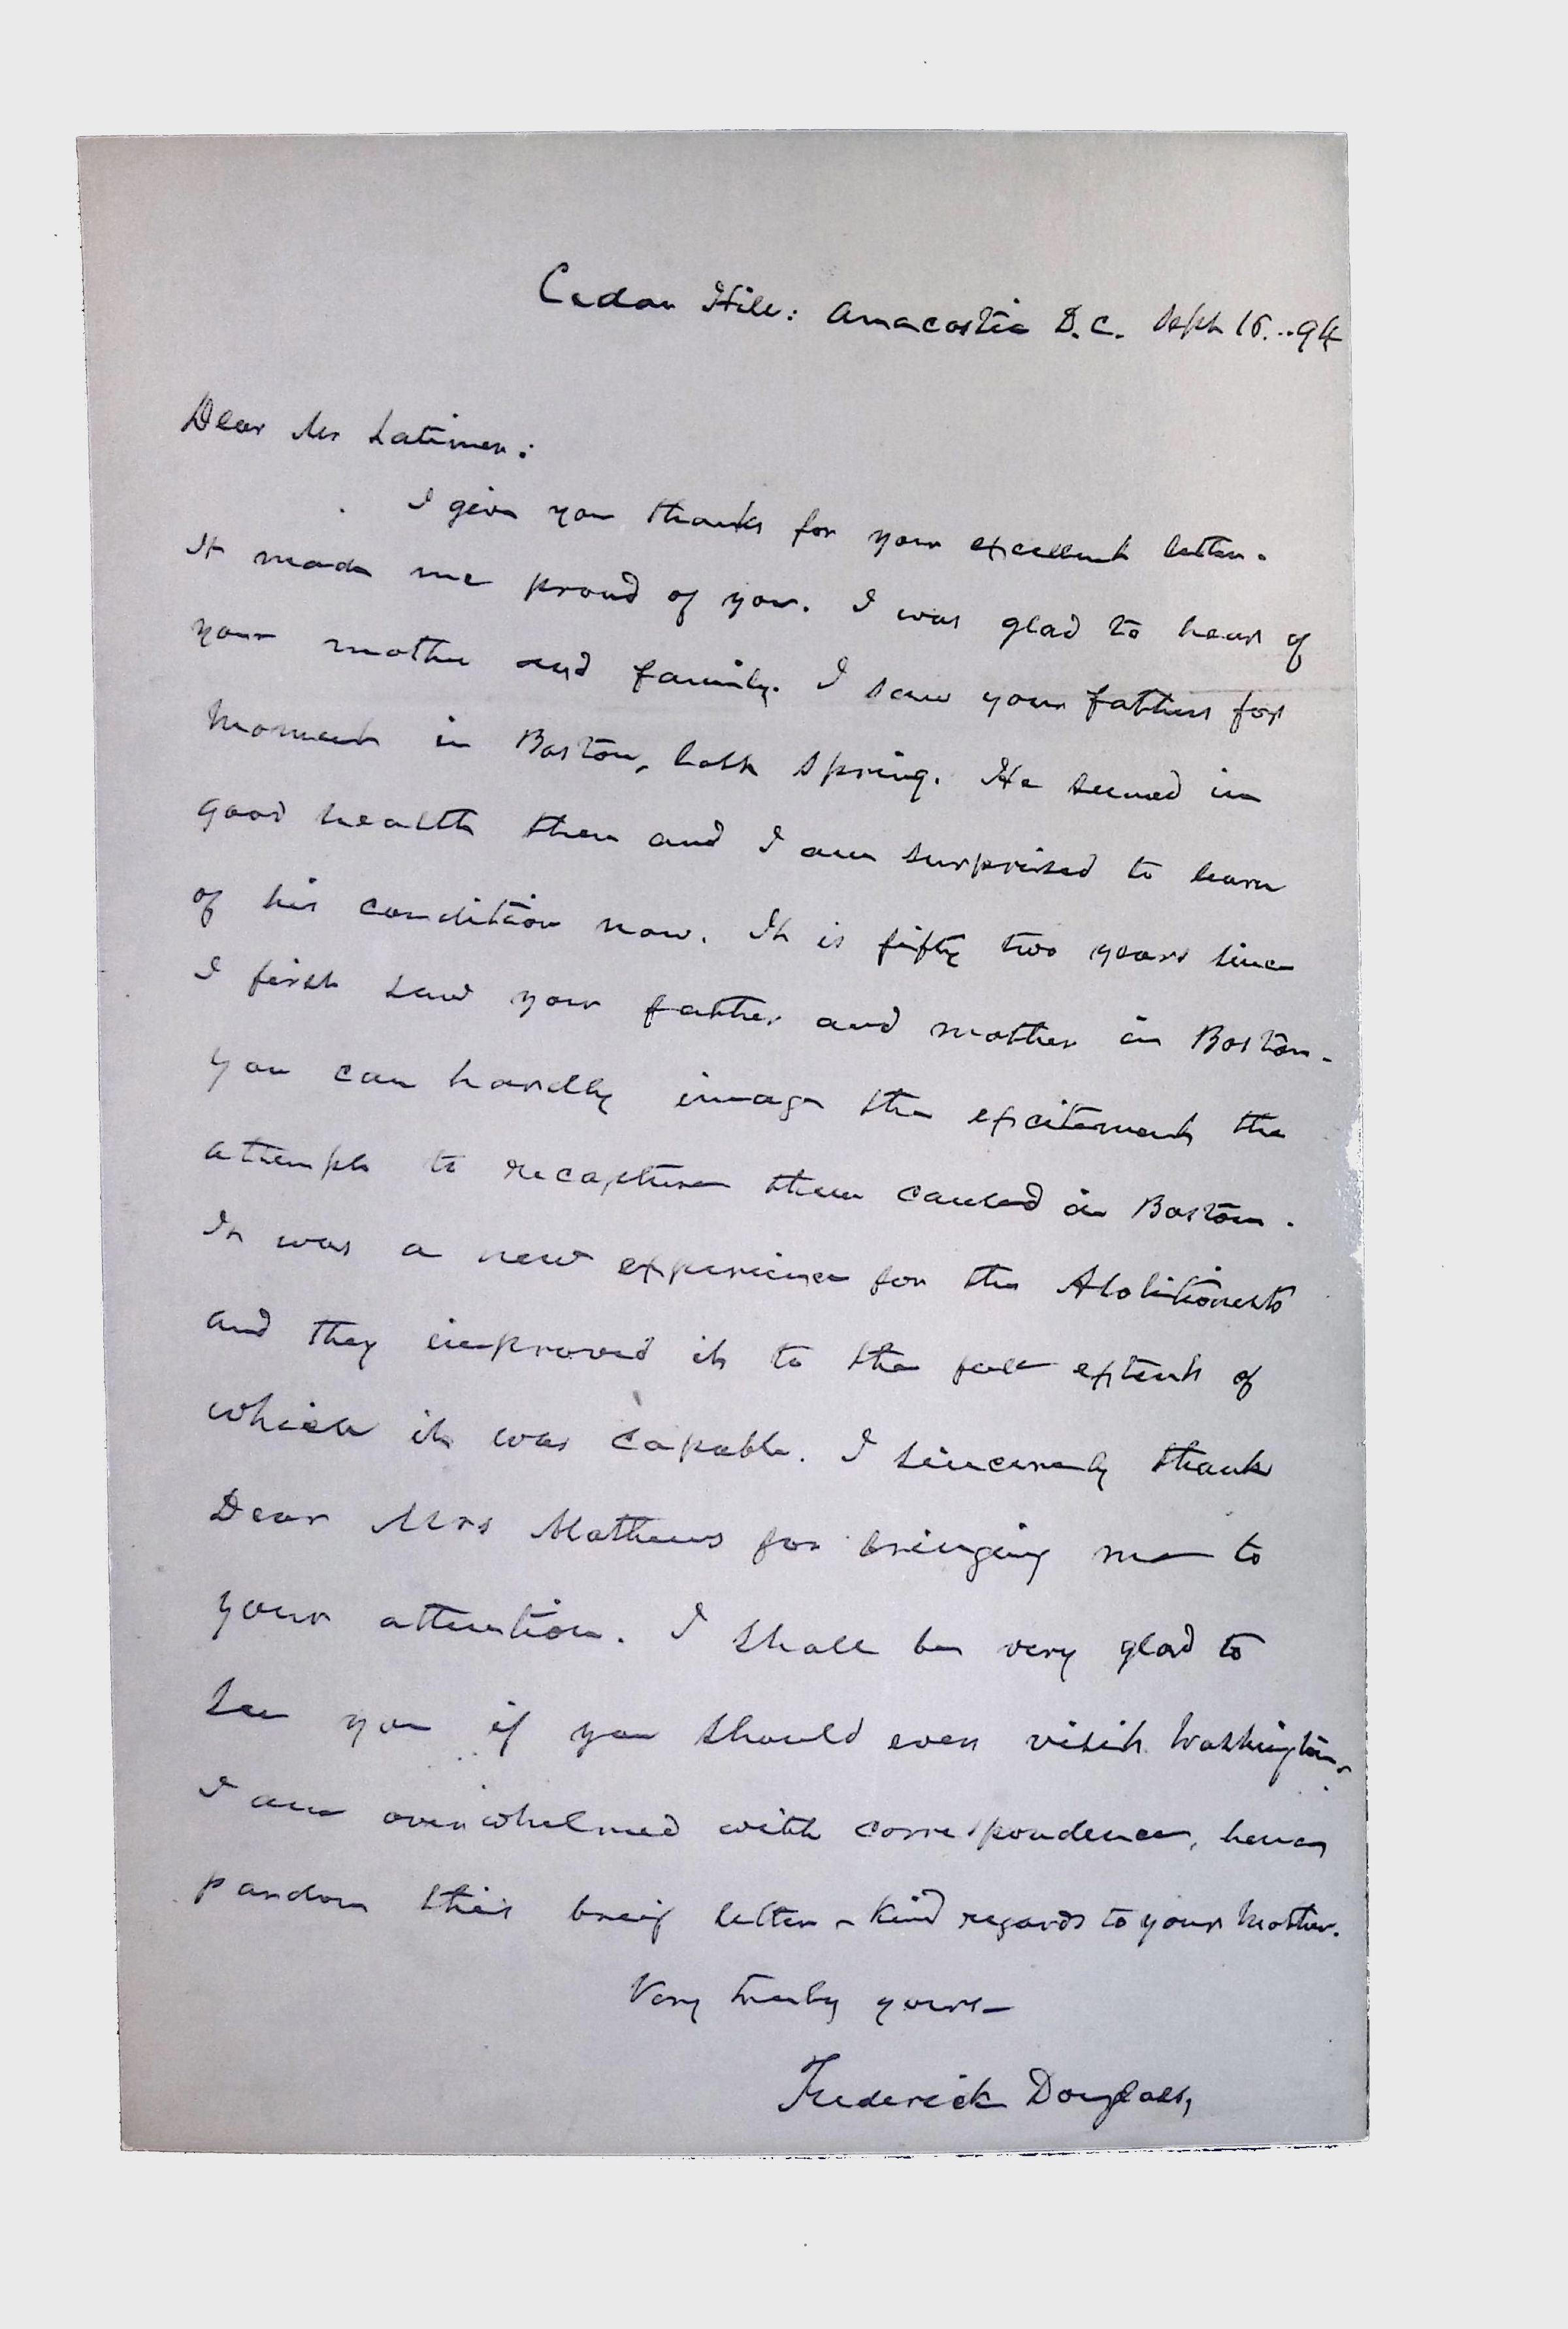 Cedar Hill: Anacostia D.C. Sept 16..94
Dear Mr Latimer:
I give you thanks for your excellent letter.
It made me proud of you. I was glad to hear of
your mother and family. I saw your father for
moment in Boston, last spring. He seemed in
good health then and I am surprised to learn
of his condition now. It is fifty two years since
I first saw your father and mother in Boston.
You can hardly image the excitement the
attempt to recapture them caused in Boston.
It was a new experience for the Abolitionests
and they improved it to the full extent of
which it was capable. I sincerely thank
Dear Mrs Mathews for bringing me to
your attention. I shall be very glad to
see you if you should ever visit Washington.
I am overwhelmed with correspondence, hence
pardon this brief letter - Kind regards to your Mother.
Very truly yours -
Frederick Douglass,